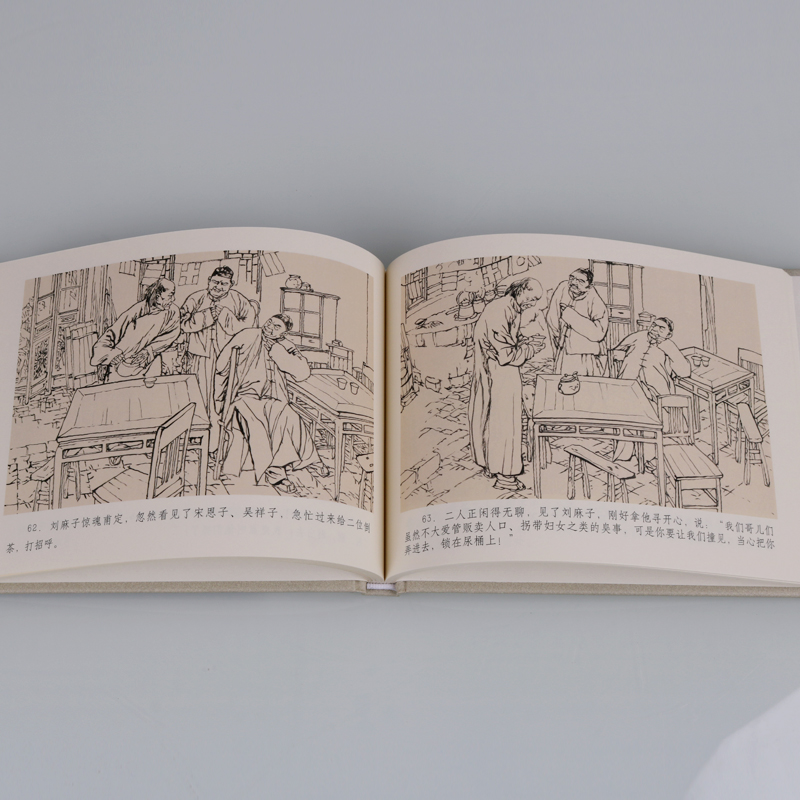 62．刘麻子惊魂甫定，忽然看见了宋恩子、吴祥子，急忙过来给二位倒
茶，打招呼。
63．二人正闲得无聊，见了刘麻子，刚好拿他寻开心，说：“我们哥儿们
虽然不大爱管贩卖人口、拐带妇女之类的臭事，可是你要让我们撞见，当心把你
弄进去，锁在尿桶上！”